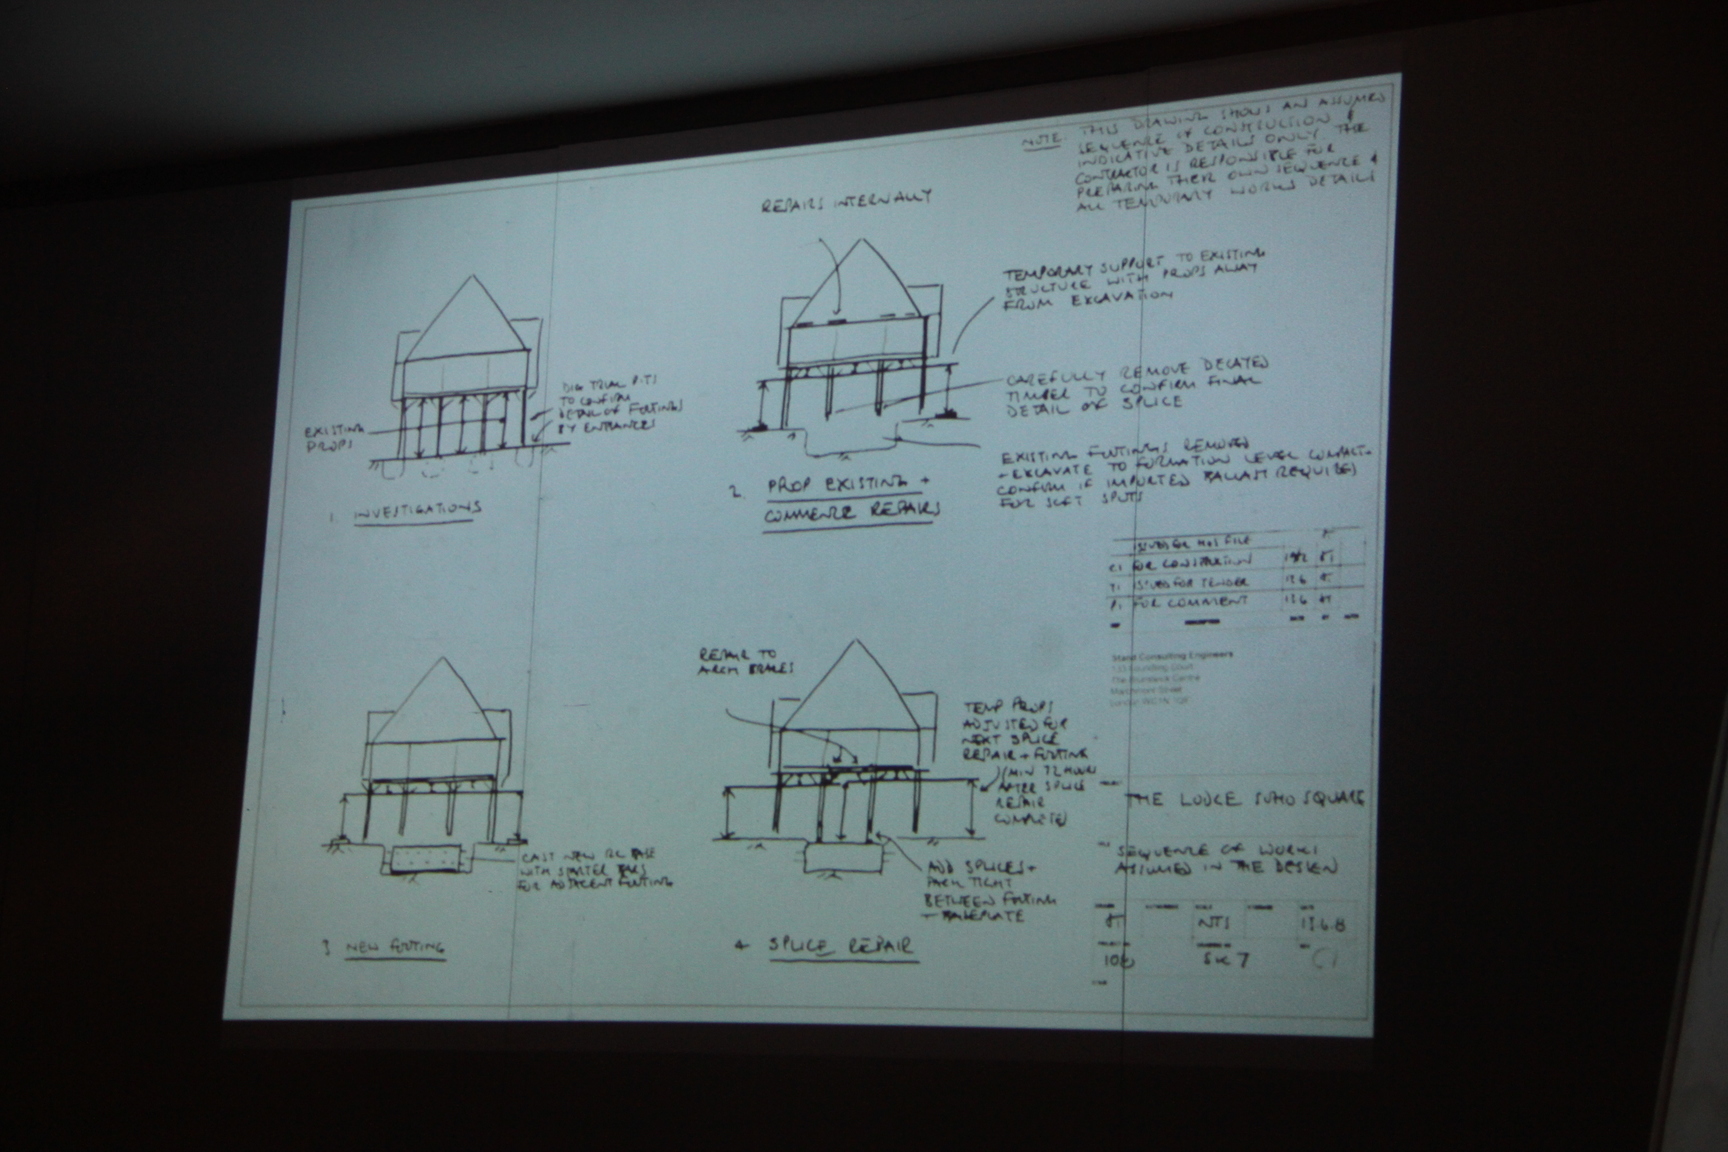 NOTE: THIS DRAWING SHOWS AN ASSUMED
SEQUENCE OF CONSTRUCTION &
INDICATIVE DETAILS ONLY. THE
CONTRACTOR IS RESPONSIBLE FOR
PREPARING THEIR OWN SEQUENCE &
ALL TEMPORARY WORKS DETAILS
EXISTING
PROPS
DIG TRIAL PITS
TO CONFIRM
DETAIL OF FOOTINGS
BY ENTRANCES
1. INVESTIGATIONS
REPAIRS INTERNALLY
TEMPORARY SUPPORT TO EXISTING
STRUCTURE WITH PROPS AWAY
FROM EXCAVATION
CAREFULLY REMOVE DECAYED
TIMBER TO CONFIRM FINAL
DETAIL OF SPLICE
EXISTING FOOTINGS REMOVED
- EXCAVATE TO FORMATION LEVEL COMPACT +
CONFIRM IF IMPORTED BALLAST REQUIRED
FOR SOFT SPOTS
2. PROP EXISTING +
COMMENCE REPAIRS
CAST NEW RC BASE
WITH STARTER BARS
FOR ADJACENT FOOTING
3 NEW FOOTING
REPAIR TO
ARCH BRACES
TEMP PROPS
ADJUSTED FOR
NEXT SPLICE
REPAIR + FOOTING
(MIN 72 HOURS
AFTER SPLICE
REPAIR
COMPLETE)
ADD SPLICES +
PACK TIGHT
BETWEEN FOOTING
+ BASEPLATE
4 SPLICE REPAIR
ISSUED FOR H+S FILE
C1 FOR CONSTRUCTION
T1 ISSUED FOR TENDER 13.6
P1 FOR COMMENT 13.6
Stand Consulting Engineers
The Brunswick Centre
Marchmont Street
THE LODGE SOHO SQUARE
SEQUENCE OF WORKS
ASSUMED IN THE DESIGN
NTS 13.6.8
SK 7 C1